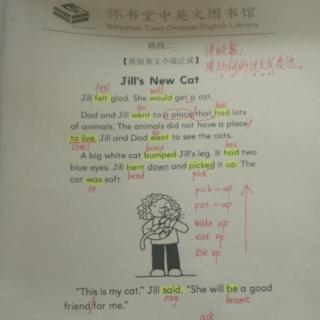 怀书堂中英文图书馆
Whyshoo Town Chinese-English Library
路线二
【原版英文小说泛读】
讲故事,
用动词的过去式表达。
Jill's New Cat
feel will
Jill felt glad. She would get a cat.
go has
Dad and Jill went to a place that had lots
of animals. The animals did not have a place
to live. Jill and Dad went to see the cats.
(live) bump has
A big white cat bumped Jill's leg. It had two
blue eyes. Jill bent down and picked it up. The
bend pick
cat was soft.
is
pick - up
put - up
wake up
eat up
use up
"This is my cat," Jill said. "She will be a good
say became
friend for me."
ask